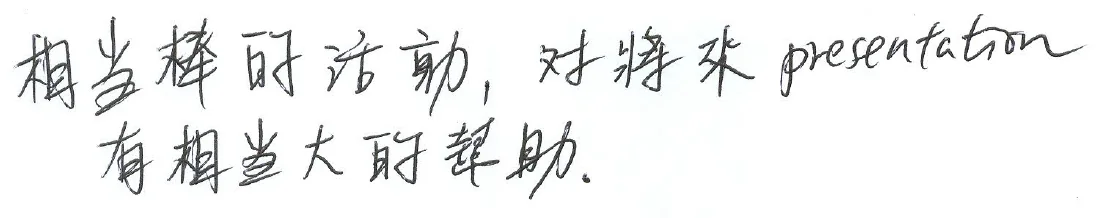 相当棒的活動, 对將來 presentation
有相当大的幫助.